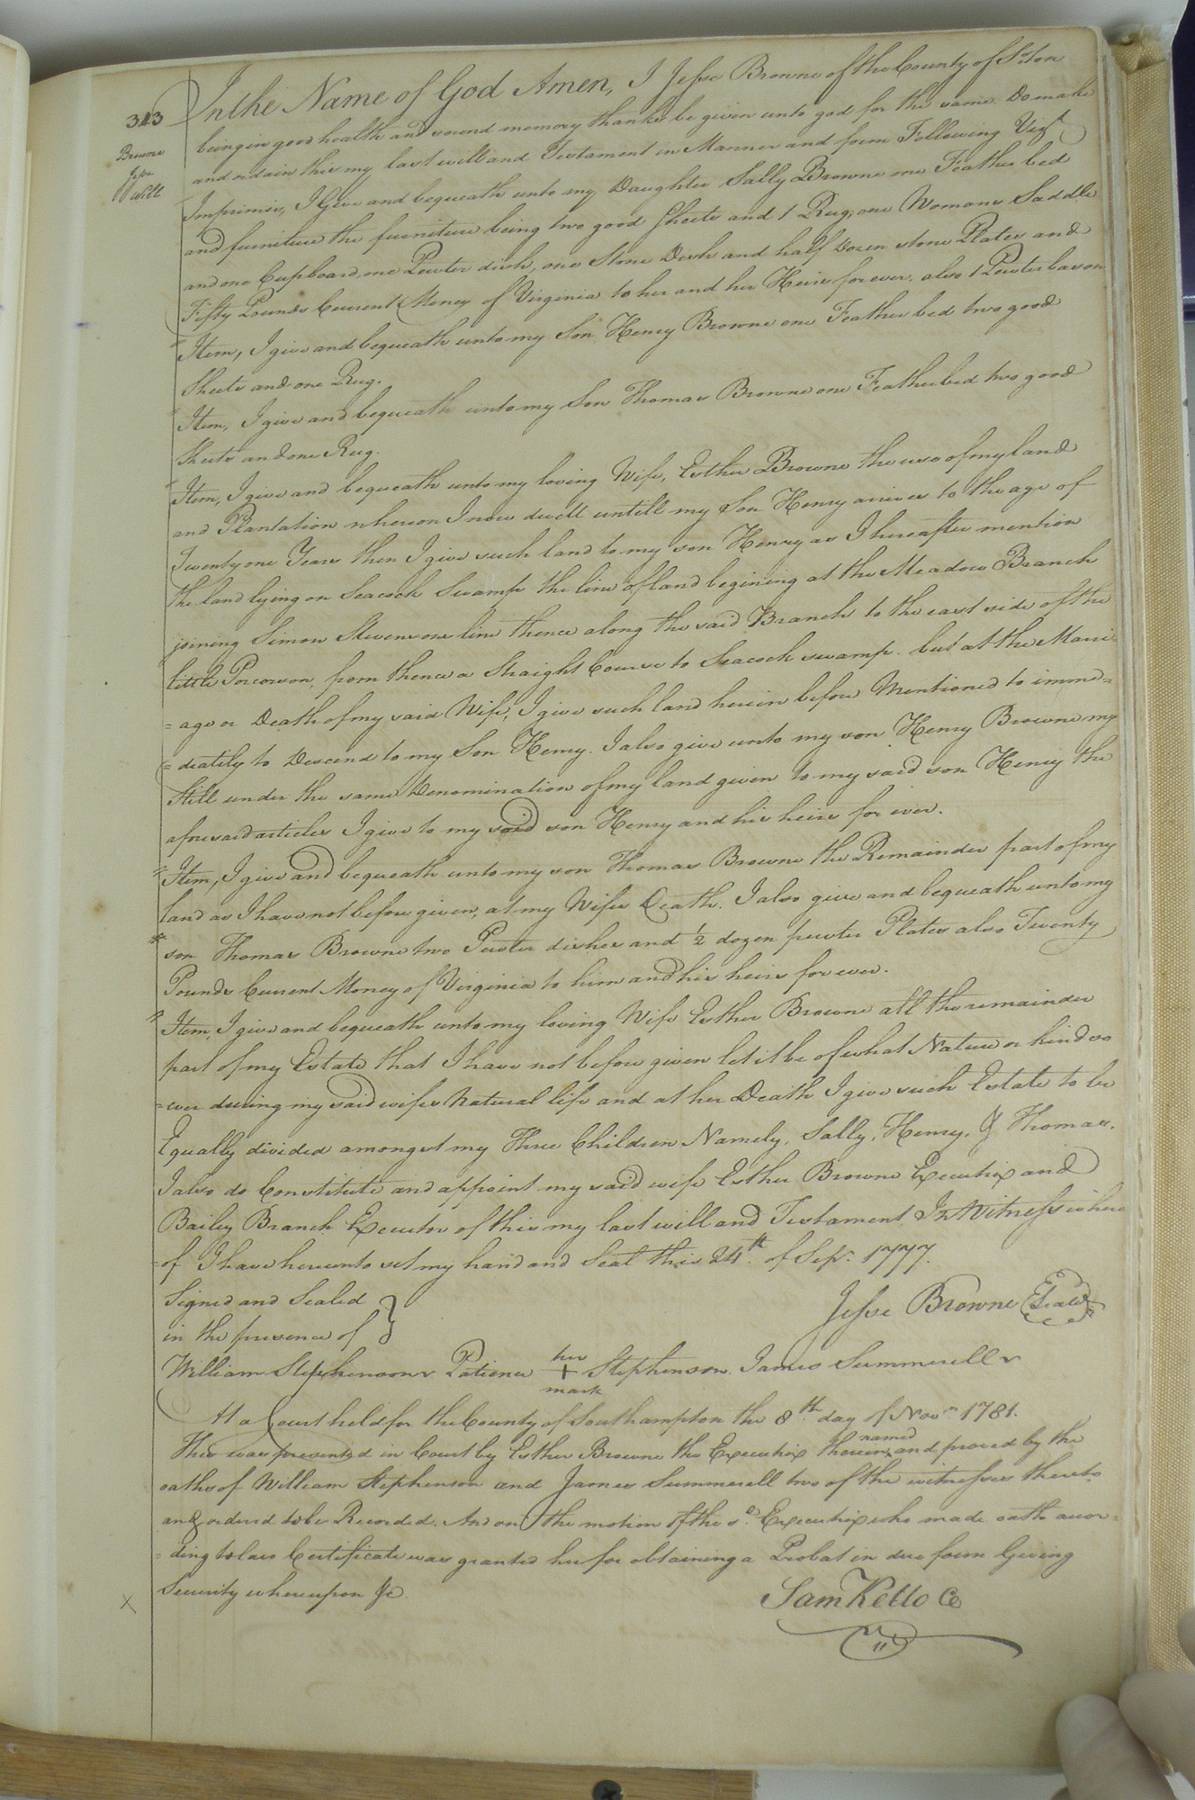 313
Browne
Jesse
Will
In the Name of God Amen, I Jesse Browne of the County of S.ton
being in good health and sound memory thanks be given unto god for the same. Do make
and ordain this my last will and Testament in Manner and form Following Vizt
Imprimis, I Give and bequeath unto my Daughter Sally Browne one Feather bed
and furniture the furniture being two good Sheets and 1 Rug, one Womans Saddle
and one Cupboard, one Pewter dish, one Stone Dish and half dozen stone Plates and
Fifty Pounds Current Money of Virginia to her and her Heirs forever. also 1 Pewter bason
Item, I give and bequeath unto my Son Henry Browne one Feather bed two good
Sheets and one Rug.
Item, I give and bequeath unto my Son Thomas Browne one Featherbed two good
Sheets and one Rug.
Item, I give and bequeath unto my loving Wife, Esther Browne the use of my land
and Plantation whereon I now dwell untill my Son Henry arrives to the age of
Twenty one Years then I give such land to my son Henry as I hereafter mention
the land lying on Seacock Swamp the line of land begining at the Meadow Branch
joining Simon Stevensons line thence along the said Branch to the east side of the
little Porcoson, from thence a Straight Course to Seacock swamp. but at the Marri
= age or Death of my said Wife, I give such land herein before Mentioned to imme=
= diately to Descend to my Son Henry. I also give unto my son Henry Browne my
Still under the same Denomination of my land given to my said son Henry the
aforesaid articles I give to my said son Henry and his heirs for ever.
Item, I give and bequeath unto my son Thomas Browne the Remainder part of my
land as I have not before given, at my Wifes Death. I also give and bequeath unto my
son Thomas Browne two Pewter dishes and ½ dozen pewter Plates also Twenty
Pounds Current Money of Virginia to him and his heirs for ever.
Item, I give and bequeath unto my loving Wife Esther Browne all the remainder
part of my Estate that I have not before given let it be of what Nature or kind so
=ever during my said wifes Natural life and at her Death I give such Estate to be
Equally divided amongst my Three Children Namely, Sally, Henry, & Thomas.
I also do Constitute and appoint my said wife Esther Browne Executrix and
Bailey Branch Executor of this my last will and Testament In Witness where
=of I have hereunto set my hand and Seal this 24th. of Sepr. 1777.
Signed and Sealed
in the presence of
Jesse Browne (Seal)
William Stephenson Patience her + mark Stephenson. James Summerell
At a Court held for the County of Southampton the 8th. day of Novr. 1781.
This was presented in Court by Esther Browne the Executrix therein named and proved by the
oaths of William Stephenson and James Summerell two of the witnesses thereto
and ordered to be Recorded. And on the motion of the sd. Executrix who made oath accor=
=ding to law Certificate was granted her for obtaining a Probat in due form Giving
Security whereupon &c
X
Sam Kello Cc